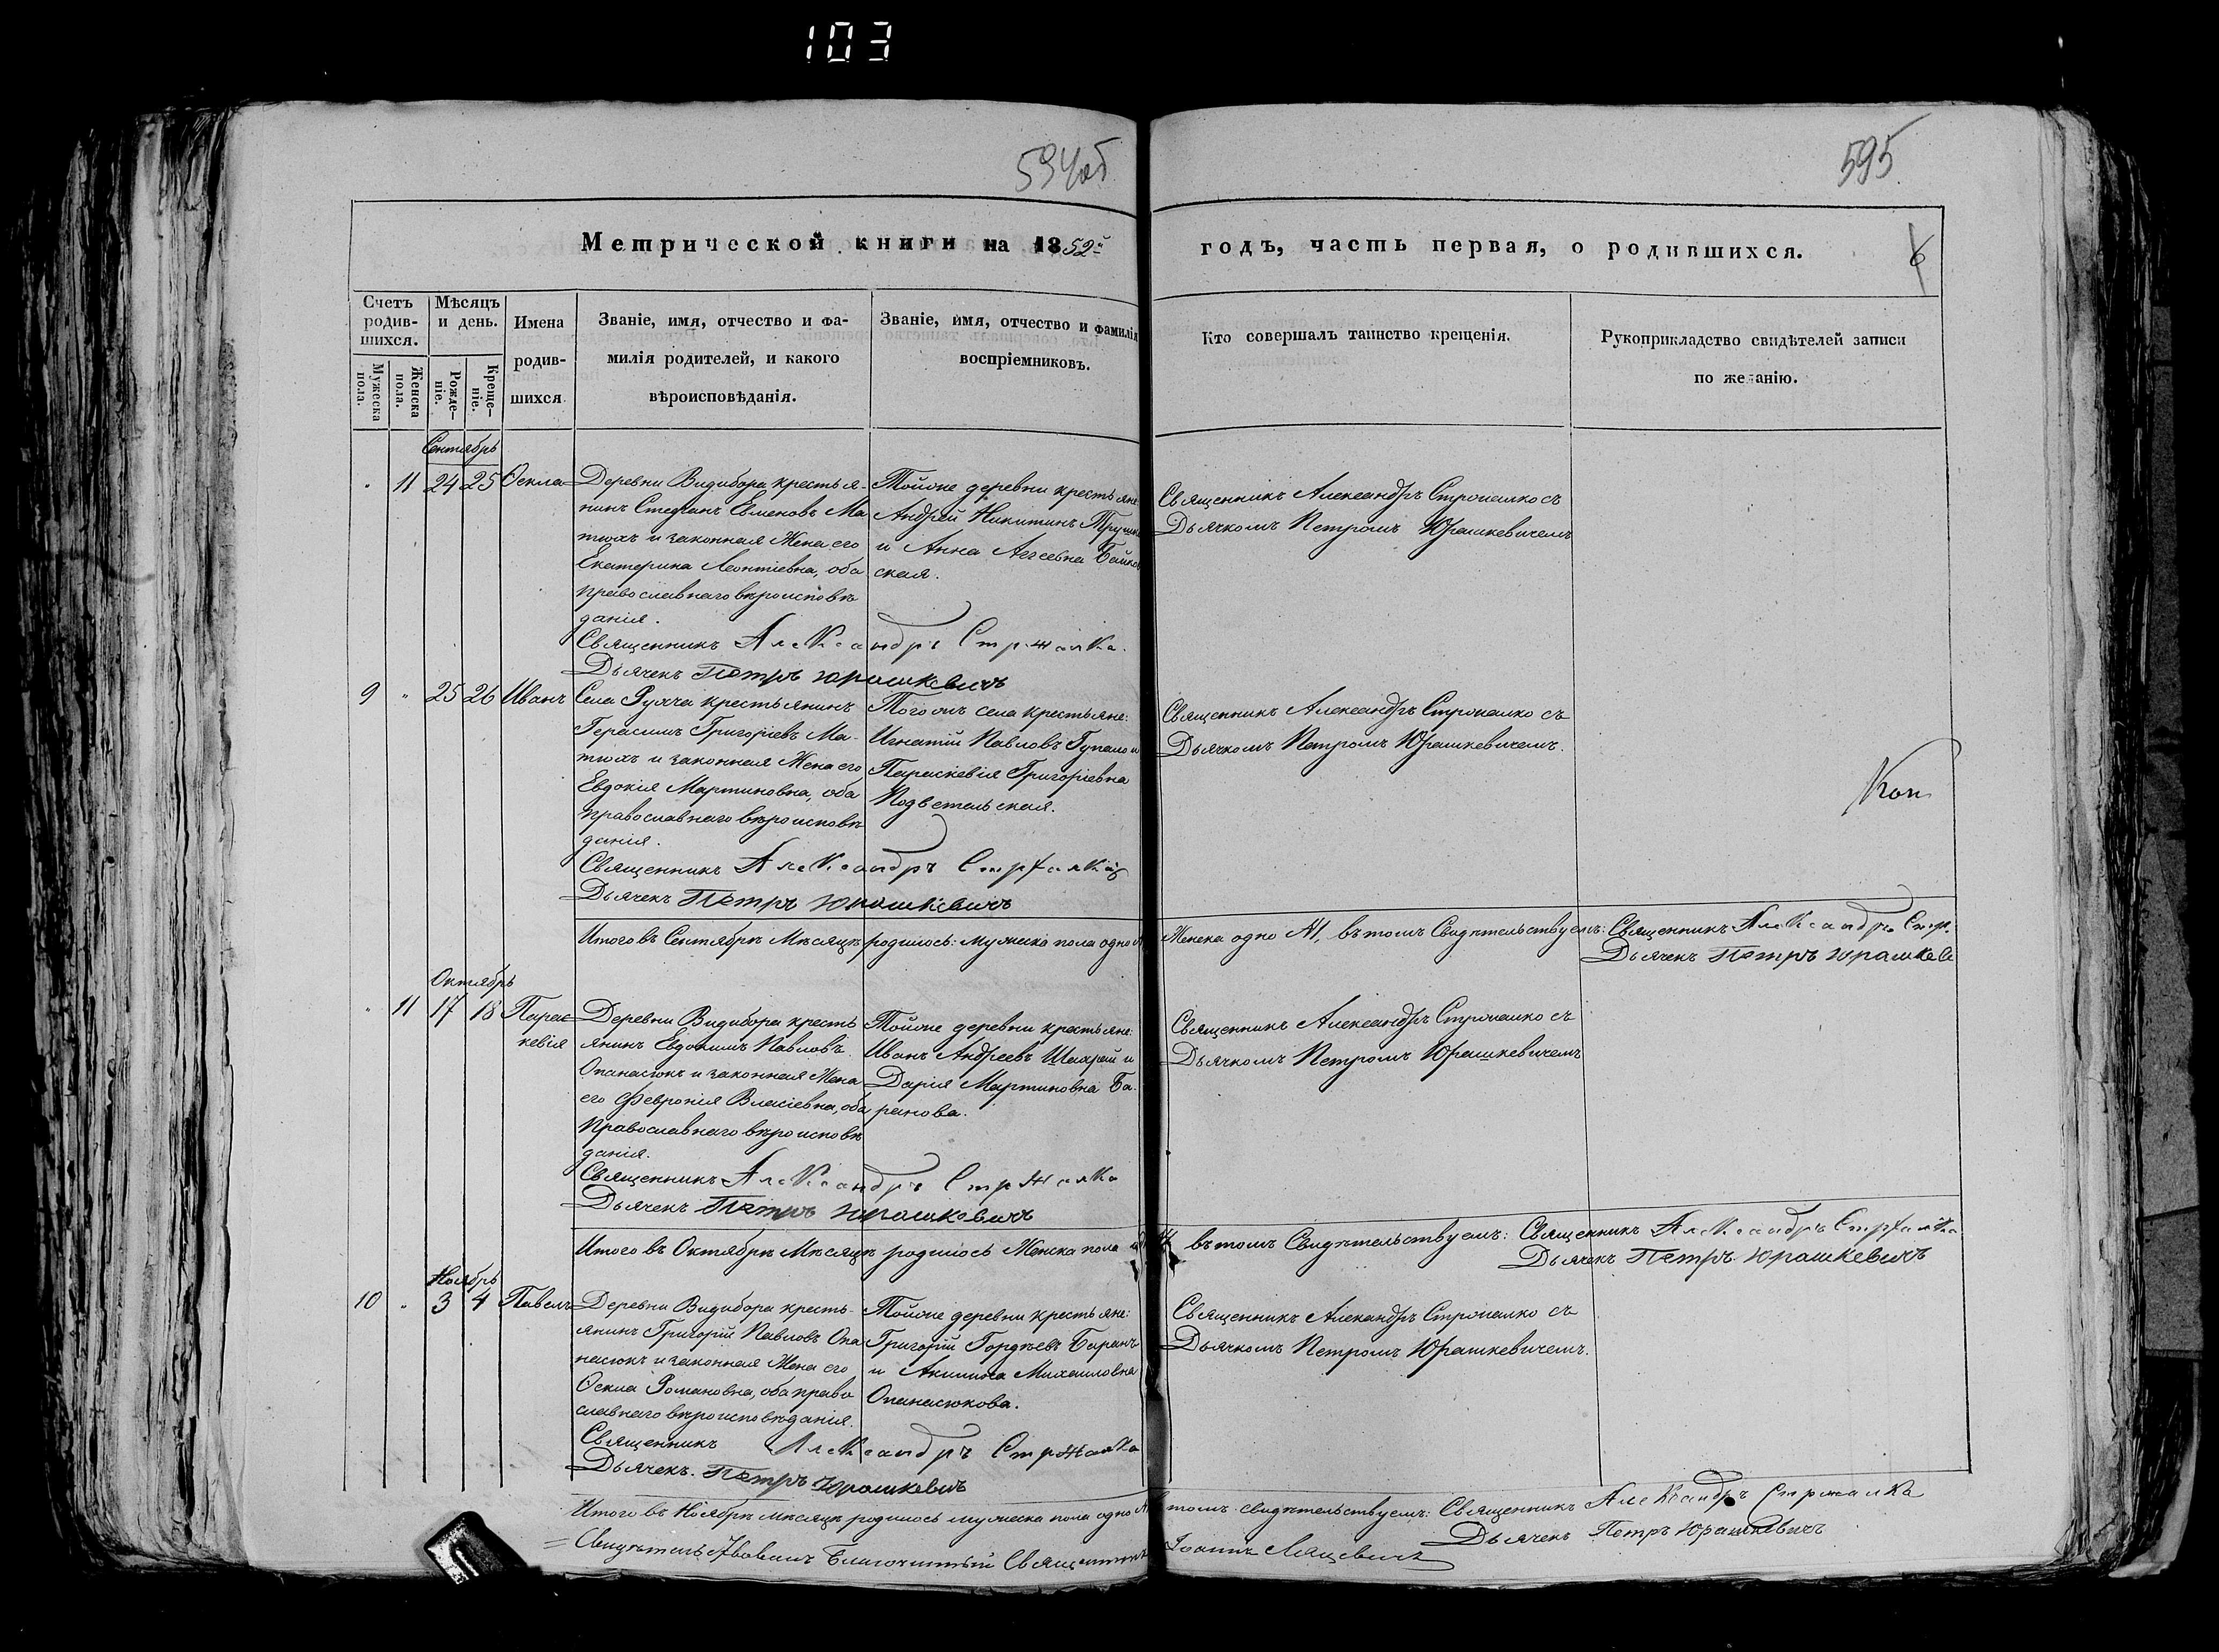 103
594об
595
Метрической книги на 1852й
годъ, часть первая, о родившихся.
6
Счетъ родив-шихся.
Мужеска пола.
Женска пола.
Мѣсяцъ и день.
Рожде-ніе.
Креще-ніе.
Имена
родив-
шихся
Званіе, имя, отчество и фа-
милія родителей, и какого
вѣроисповѣданія.
Званіе, имя, отчество и фамилія
воспріемниковъ.
Кто совершалъ таинство крещенія.
Рукоприкладство свидѣтелей записи
по желанію.
Сентябрь
" 11 24 25 Ѳекла
Деревни Видибора крестья-
нинъ Стефанъ Евменовъ Ма
тюхъ и законная Жена его
Екатерина Леонтіевна, оба
православнаго вѣроисповѣ
данія.
Священникъ Александръ Стржалко
Дьячекъ Петръ Юрашкевичъ
Тойже деревни крестьяне
Андрей Никитинъ
и Анна Аггеевна
ская.
Священникъ Александръ Строчалко съ
Дьячкомъ Петромъ Юрашкевичемъ
9 " 25 26 Иванъ
Села крестьянинъ
Герасимъ Григоріевъ Ма-
тюхъ и законная Жена его
Евдокія Мартиновна, оба
православнаго вѣроисповѣ
данія.
Священникъ Александръ Стржалко
Дьячекъ Петръ Юрашкевичъ
Тогожъ села крестьяне:
Игнатій Павловъ Гупало и
Параскевія Григоріевна
Священникъ Александръ Стржалко съ
Дьячкомъ Петромъ Юрашкевичемъ.
Итого въ Сентябрѣ Мѣсяцѣ родилось: мужеска пола одно
Женска одно №1, въ томъ Свидѣтельствуемъ: Священникъ Александръ Стр.
Дьячекъ Петръ Юрашкев
Октябрь
" 11 17 18 Парас
кевія
Деревни Видибора кресть
янинъ Евдокимъ Павловъ
Опанасюкъ и законная Жена
его Февронія Власіевна, оба
Православнаго вѣроисповѣ
данія.
Священникъ Александръ Стржалко
Дьячекъ Петръ Юрашкевичъ
Тойже деревни крестьяне:
Иванъ Андреевъ Шахрай и
Дарія Мартиновна Ба-
ранова.
Священникъ Александръ Стржалко съ
Дьячкомъ Петромъ Юрашкевичемъ
Итого въ Октябрѣ Мѣсяцѣ родилось Женска пола
въ томъ Свидѣтельствуемъ: Священникъ Александръ Стржалко
Дьячекъ Петръ Юрашкевичъ
Ноябрь
10 " 3 4 Павелъ
Деревни Видибора кресть-
янинъ Григорій Павловъ Опа
насюкъ и законная Жена его
Ѳекла Романовна, оба право
славнаго вѣроисповѣданія.
Священникъ Александръ Стржалко
Дьячекъ. Петръ Юрашкевичъ
Тойже деревни крестьяне:
Григорій Гордѣевъ Баранъ
и Михаиловна
Опанасюкова.
Священникъ Александръ Стржалко съ
Дьячкомъ Петромъ Юрашкевичемъ.
Итого въ Ноябрѣ мѣсяцѣ родилось мужеска пола одно
томъ свидѣтельствуемъ: Священникъ Александръ Стржалко
Дьячекъ Петръ Юрашкевичъ
Благочинный Священникъ Іоаннъ